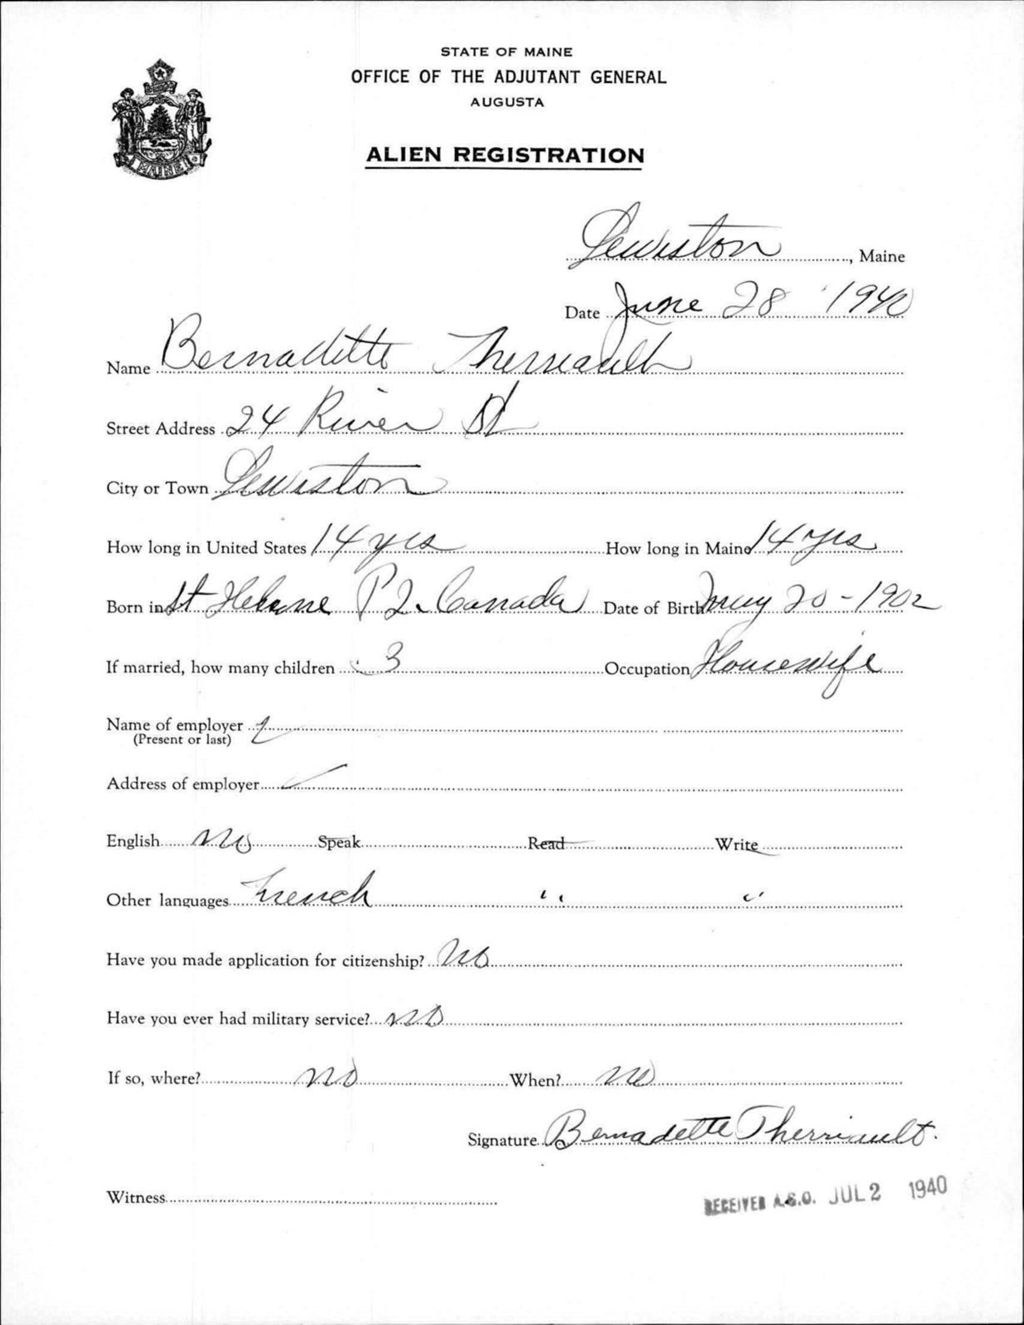 STATE OF MAINE
OFFICE OF THE ADJUTANT GENERAL
AUGUSTA
ALIEN REGISTRATION
Lewiston, Maine
Date June 28 1940
Name Bernadette Therriault
Street Address 24 River St
City or Town Lewiston
How long in United States 14 yrs How long in Maine 14 yrs
Born in St Helene P Q. Canada Date of Birth May 20-1902
If married, how many children 3 Occupation Housewife
Name of employer
(Present or last)
Address of employer
English No Speak Read Write
Other languages French " "
Have you made application for citizenship? No
Have you ever had military service? no
If so, where? no When? no
Signature Bernadette Therriault.
Witness
RECEIVED A.G.O. JUL 2 1940